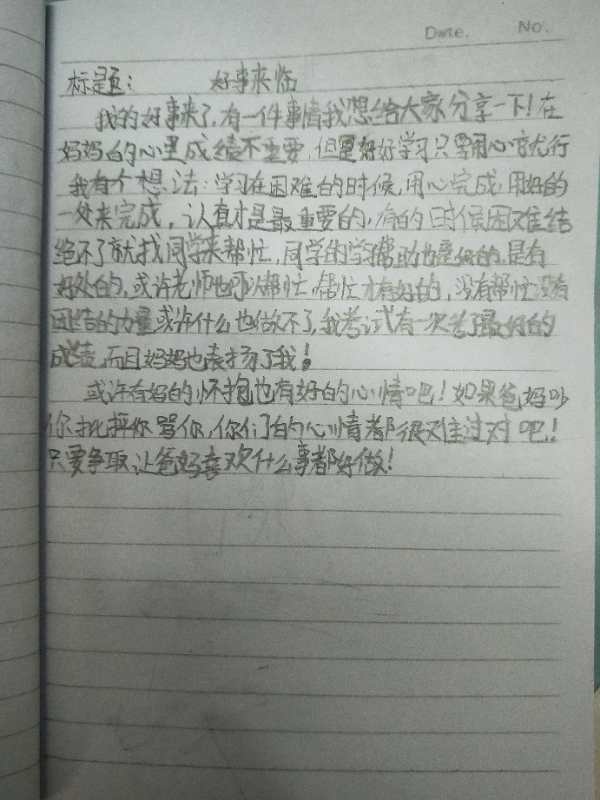 Date. No.
标题： 好事来临
我的好事来了,有一件事情我想给大家分享一下!在
妈妈的心里成绩不重要,但是好好学习只要用心完就行
我有个想法:学习在困难的时候,用心完成,用好的
一处来完成,认真才是最重要的,有的时候困难结
绝不了就找同学来帮忙,同学的学帮助也是好的,是有
好处的,或许老师也可以帮忙,帮忙才有好的,没有帮忙没有
团结的力量或许什么也做不了,我考试有一次考了最好的
成绩,而且妈妈也表扬了我!
或许有好的怀抱也有好的心情吧!如果爸妈吵
你批评你骂你,你们的心情都很难过对吧!
只要争取让爸妈喜欢什么事都好做!